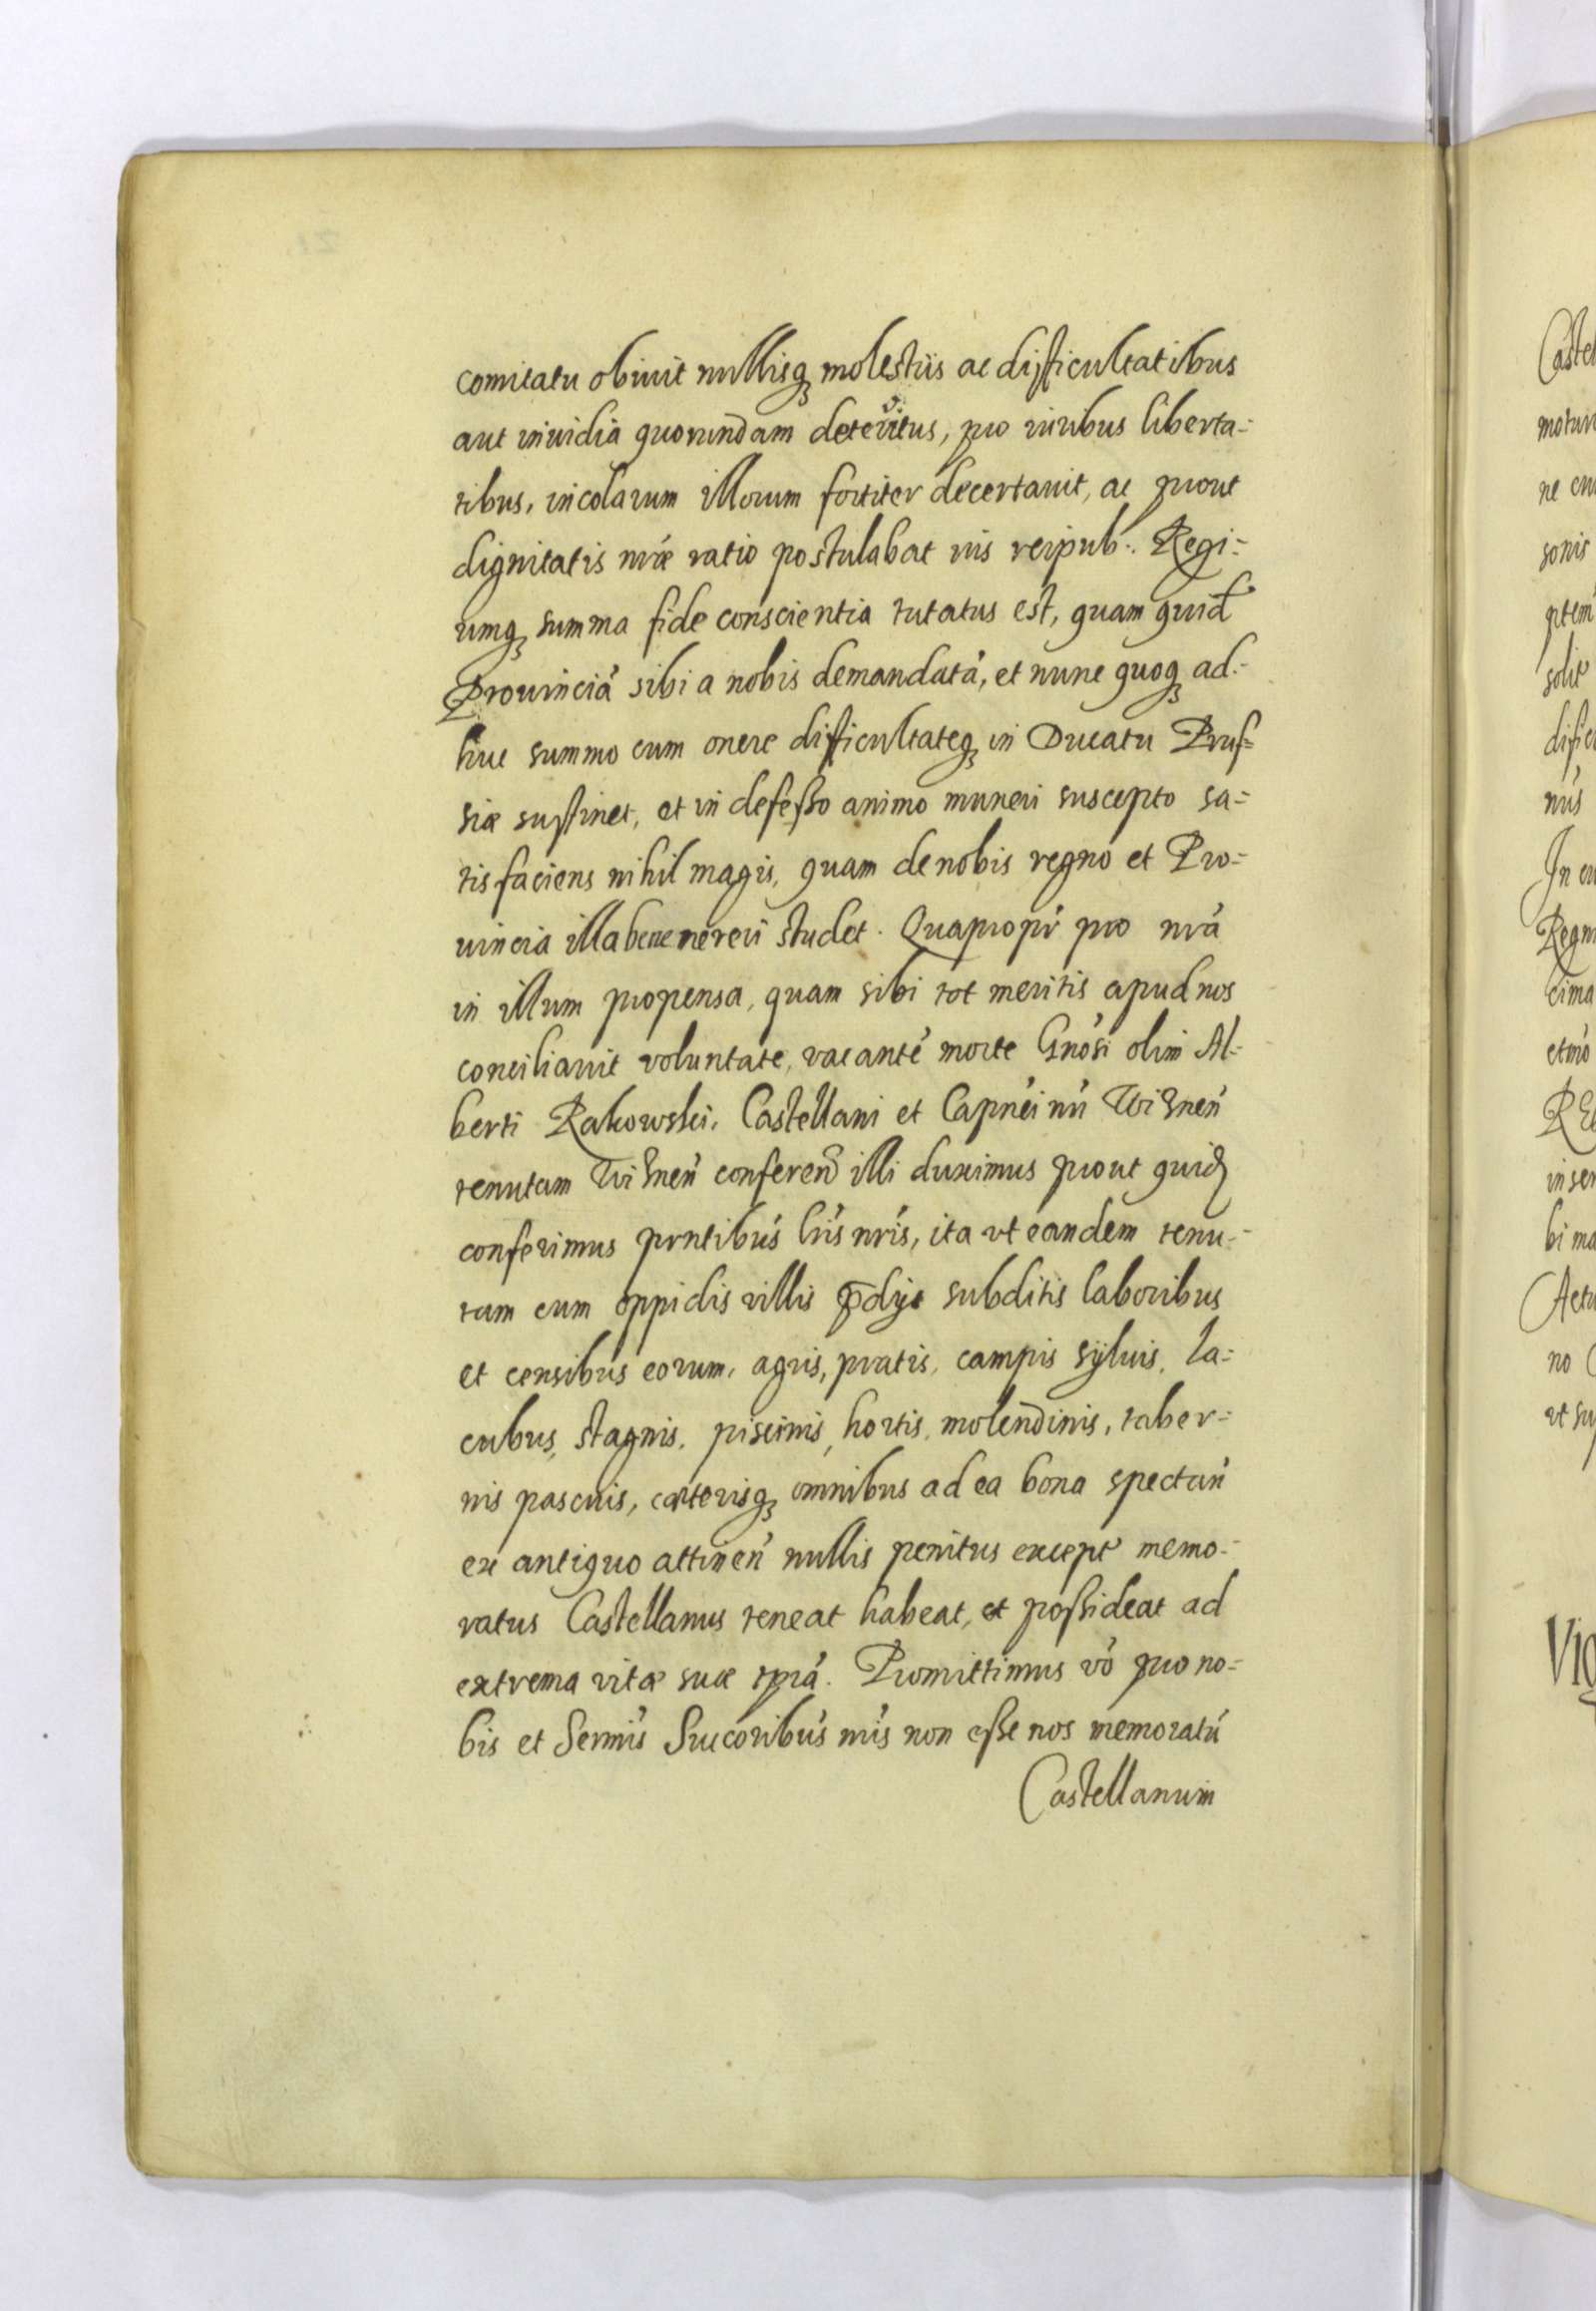 comitatu obiuit nullisq molestiis ac difficultatibus
aut inuidia quorundam deteritus, pro iuribus liberta=
tibus, incolarum illorum fortiter decertauit, ac prout
dignitatis nræ ratio postulabat ius reipub. Regi=
umq summa fide conscientia tutatus est, quam quid
Prouinciā sibi a nobis demandatā, et nunc quoq ad=
huc summo cum onere difficultateq in Ducatu Prus=
siæ sustinet, et in defesso animo muneri suscepto sa=
tisfaciens nihil magis, quam de nobis regno et Pro=
uincia illa bene mereri studet. Quapropr pro nrā
in illum propensa, quam sibi tot meritis apud nos
conciliauit voluntate, vacantē morte Gnosi olim Al=
berti Rakowski, Castellani et Capnei nri Wisnen
tenutam Wisnen conferend illi duximus prout quid
conferimus prntibus lris nris, ita vt eandem tenu=
tam cum oppidis villis prdijs subditis laboribus
et censibus eorum, agris, pratis, campis syluis, la=
cubus, stagnis, piscinis, hortis, molendinis, taber=
nis pascuis, cæterisq omnibus ad ea bona spectan
ex antiquo attinen nullis penitus except memo=
ratus Castellanus teneat habeat, et possideat ad
extrema vitæ suæ tpra. Promittimus vo pro no=
bis et Sermis Succoribus nris non esse nos memoratū
Castellanum
Castel
motum
sonis
solit
In
Regn
cima
no
vt su